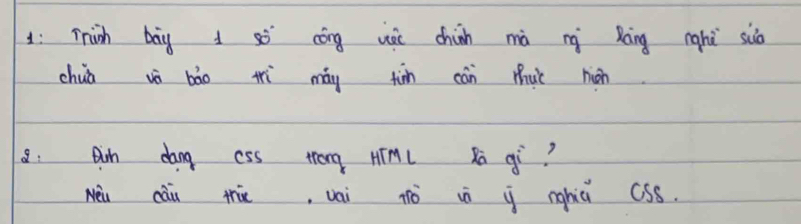 1: Trình bày 1 số công việc chính mà ng làng nghề sửa
chữa và bảo trì máy tính cần thực hiện.
2: Định dạng css trong HTML là gì?
Nêu cấu trúc, vai trò và ý nghĩa CSS.